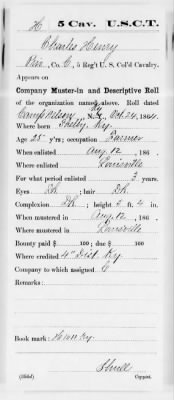 H 5 Cav. U.S.C.T.
Charles Henry
Pvt., Co. C, 5 Reg't U. S. Col'd Cavalry.
Appears on
Company Muster-in and Descriptive Roll
of the organization named above. Roll dated
Camp Nelson, Ky Oct. 24, 1864.
Where born Shelby Ky.
Age 25 y'rs; occupation Farmer
When enlisted Aug. 12, 186 .
Where enlisted Louisville
For what period enlisted 3 years.
Eyes Dk ; hair Dk
Complexion Dk ; height 5 ft. 4 in.
When mustered in Aug. 12, 186 .
Where mustered in Louisville
Bounty paid $ 100; due $ 100
Where credited 4" Dist. Ky
Company to which assigned C
Remarks:
Book mark:
(356d) Copyist.